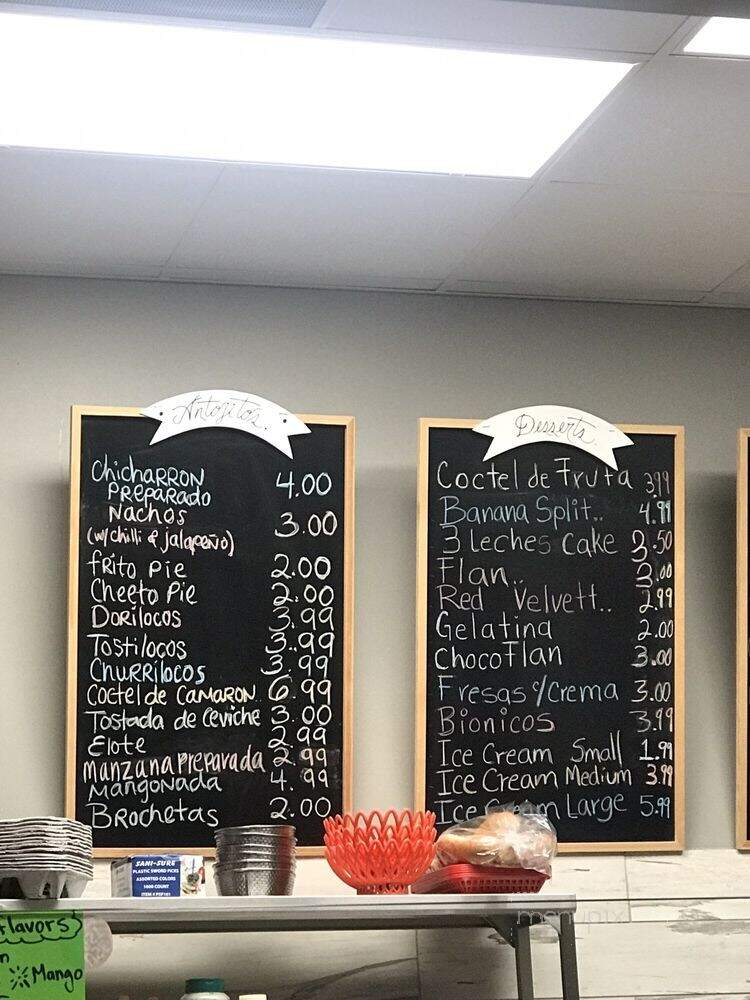 Antojitos
CHicHARRON 4.00
PREPARADO
NACHOS 3.00
(w/chilli & jalapeño)
frito Pie 2.00
Cheeto Pie 2.00
DORILOCOS 3.99
Tostilocos 3.99
CHURRILOCOS 3.99
COCTEL de CAMARON.. 6.99
Tostada de Ceviche 3.00
Elote 2.99
manzana preparada 2.99
MANGONADA 4.99
BROCHETAS 2.00
Desserts
Coctel de Fruta 3.99
Banana Split.. 4.99
3 Leches Cake 3.50
Flan.. 3.00
Red Velvett.. 2.99
Gelatina 2.00
CHOCOFlan 3.00
Fresas c/Crema 3.00
Bionicos 3.99
Ice Cream Small 1.99
Ice Cream Medium 3.99
Ice Cream Large 5.99
SANI-SURE
PLASTIC SWORD PICKS
ASSORTED COLORS
1000 COUNT
ITEM # PSP101
flavors)
Mango
menupix